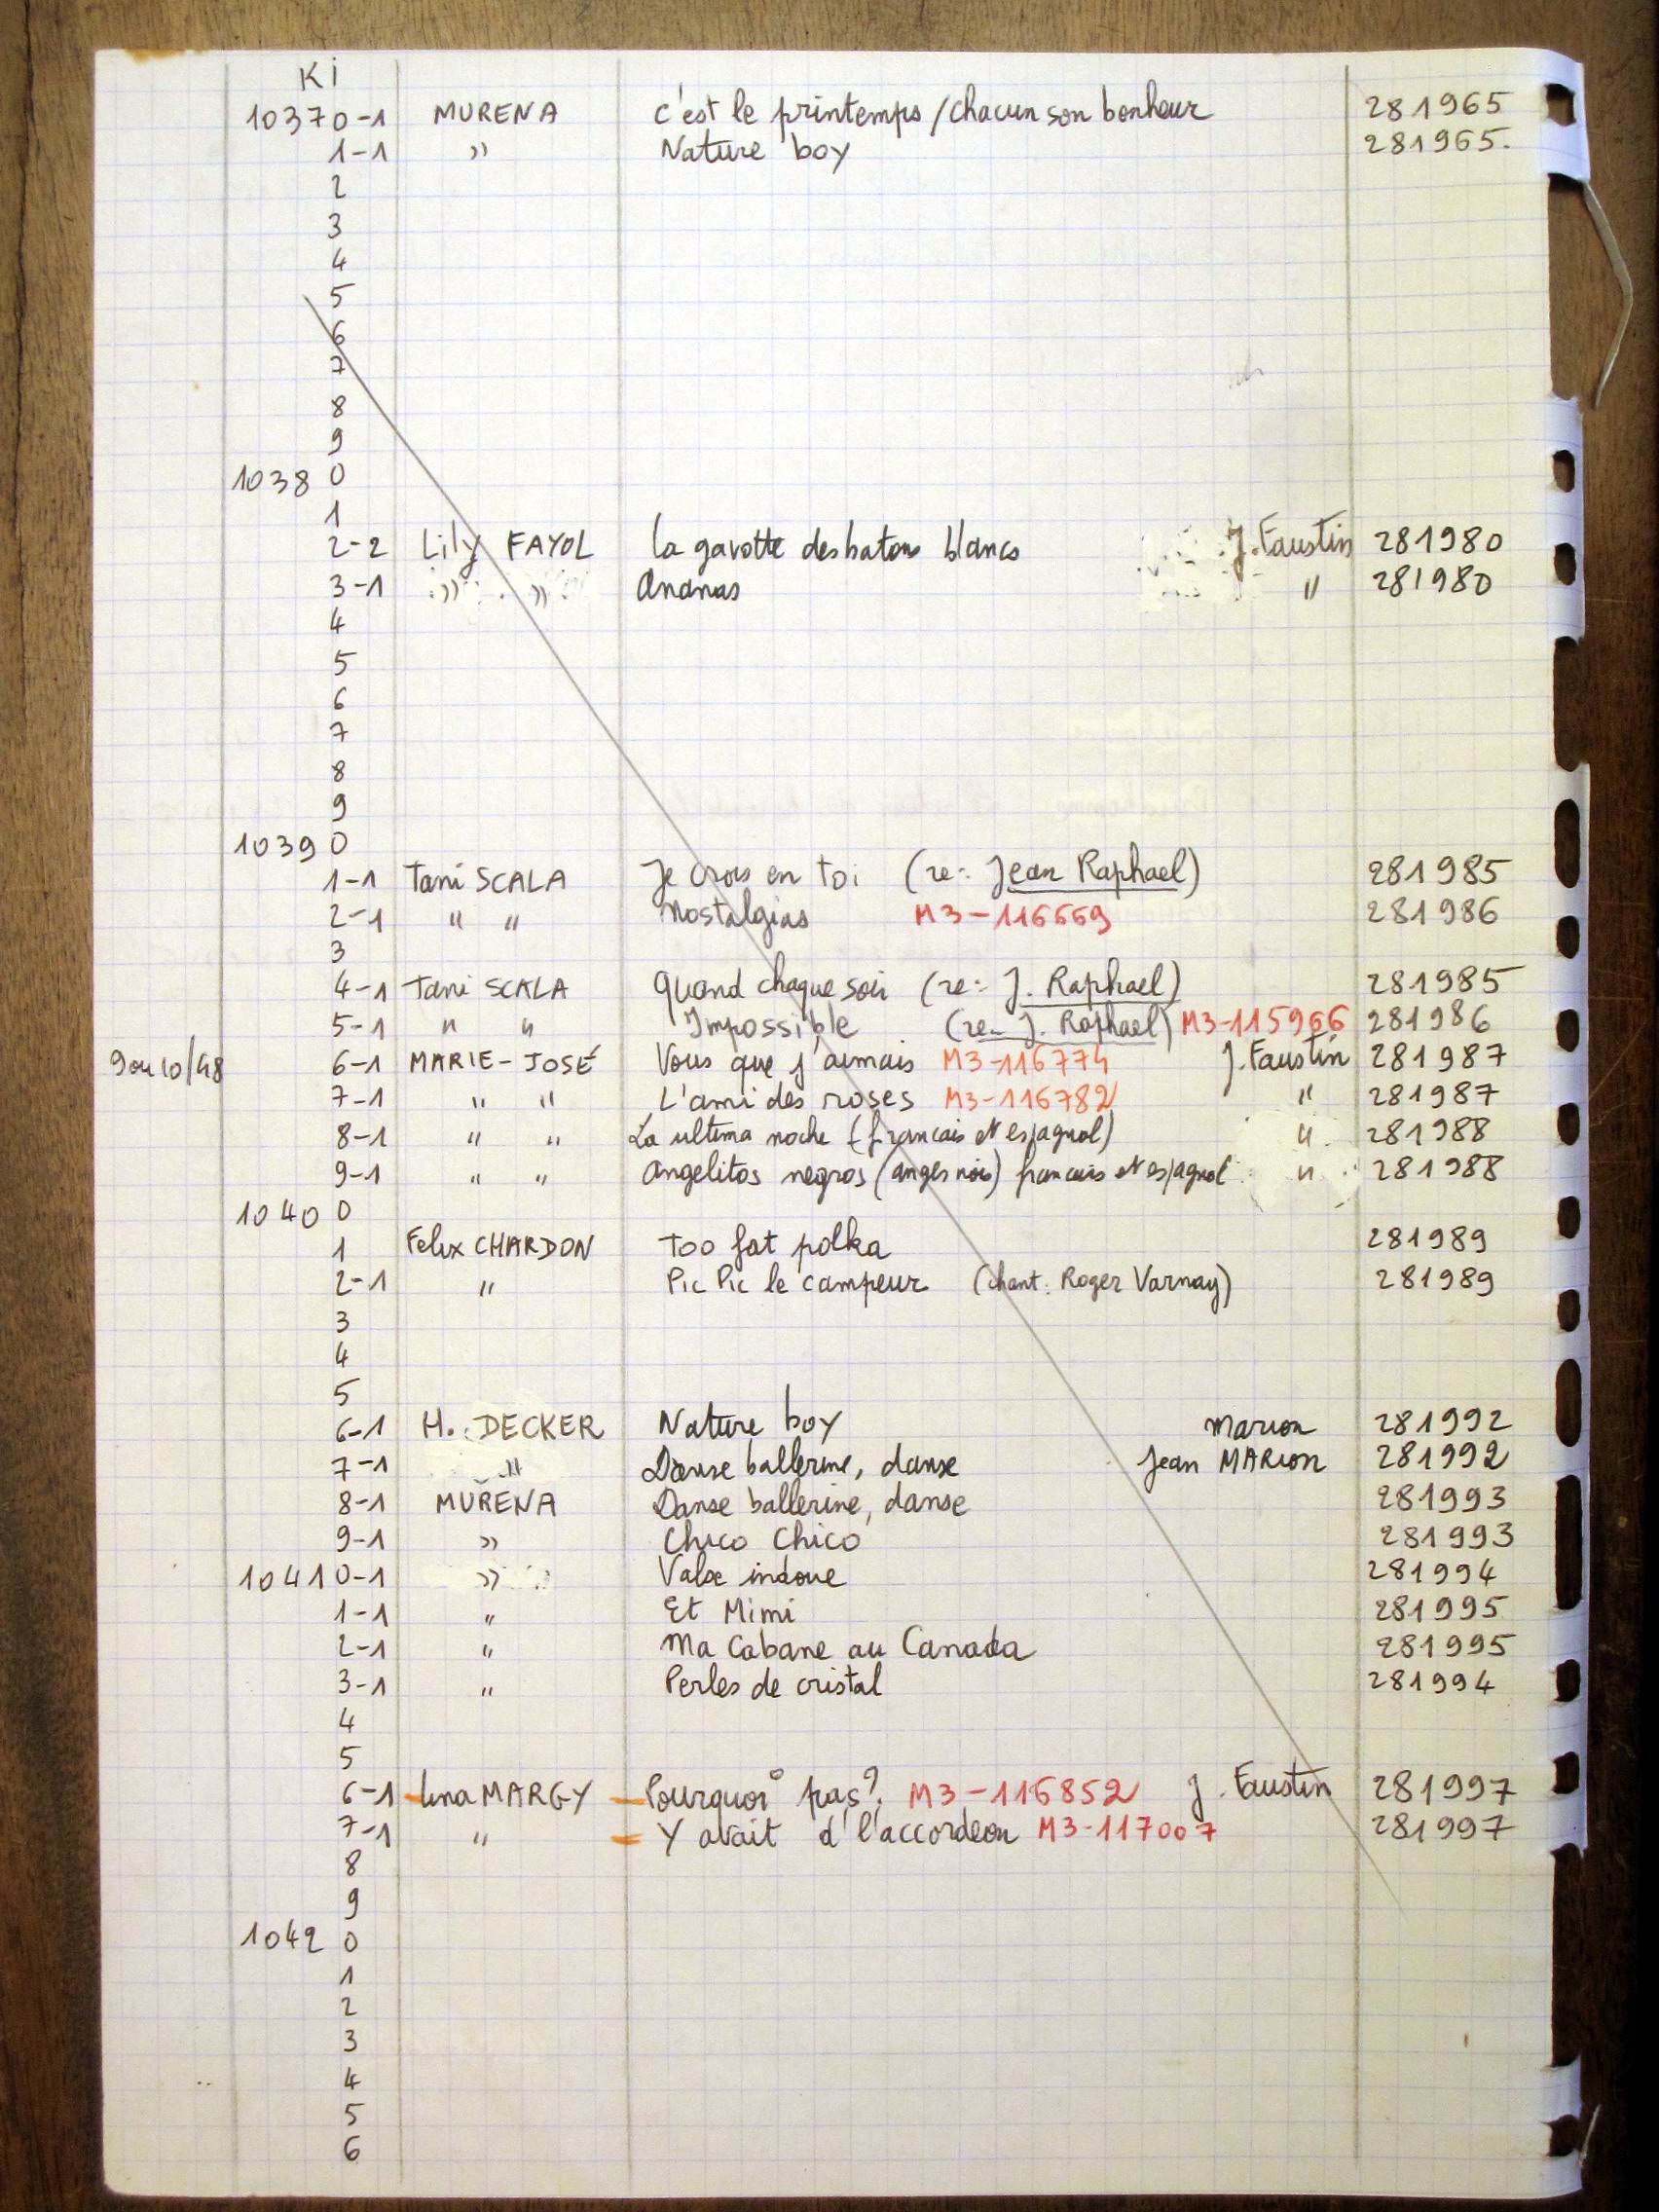 KI
10370-1 MURENA c'est le printemps / chacun son bonheur 281965
1-1 " Nature boy 281965.
2
3
4
5
6
7
8
9
1038 0
1
2-2 Lily FAYOL la gavotte des batons blancs J. Faustin 281980
3-1 " " Ananas " 281980
4
5
6
7
8
9
1039 0
1-1 Tani SCALA Je crois en toi (re: Jean Raphael) 281985
2-1 " " Nostalgias M3-116669 281986
3
4-1 Tani SCALA Quand chaque soir (re: J. Raphael) 281985
5-1 " " Impossible (re- J. Raphael) M3-115966 281986
9 ou 10/48 6-1 MARIE-JOSÉ Vous que j'aimais M3-116774 J. Faustin 281987
7-1 " " L'ami des roses M3-116782 " 281987
8-1 " " La ultima noche (francais et espagnol) " 281988
9-1 " " Angelitos negros (anges noirs) francais et espagnol " 281988
1040 0
1 Felix CHARDON Too fat polka 281989
2-1 " Pic Pic le campeur (chant: Roger Varnay) 281989
3
4
5
6-1 H. DECKER Nature boy Marion 281992
7-1 " Danse ballerine, danse Jean MARION 281992
8-1 MURENA Danse ballerine, danse 281993
9-1 " Chico Chico 281993
10410-1 " Valse indoue 281994
1-1 " Et Mimi 281995
2-1 " Ma Cabane au Canada 281995
3-1 " Perles de cristal 281994
4
5
6-1 Lina MARGY - Pourquoi pas? M3-116852 J. Faustin 281997
7-1 " = Y avait d'l'accordeon M3-117007 281997
8
9
1042 0
1
2
3
4
5
6